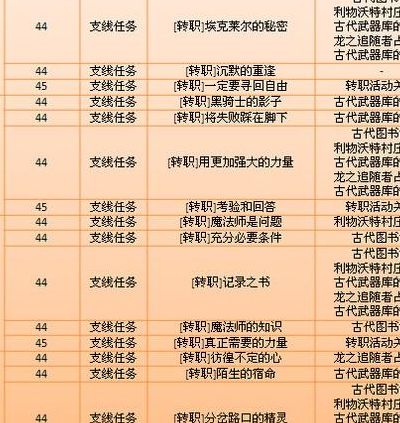 44 支线任务 [转职]埃克莱尔的秘密
利物沃特村
古代武器库的
龙之追随者
古代武器库的
44 支线任务 [转职]沉默的重逢 -
45 支线任务 [转职]一定要寻回自由 转职活动
44 支线任务 [转职]黑骑士的影子 古代武器库的
44 支线任务 [转职]将失败踩在脚下 古代武器库的
44 支线任务 [转职]用更加强大的力量
古代图书
利物沃特村
古代武器库的
龙之追随者
古代武器库的
45 支线任务 [转职]考验和回答 转职活动
44 支线任务 [转职]魔法师是问题 利物沃特村
44 支线任务 [转职]充分必要条件 古代图书
44 支线任务 [转职]记录之书
古代图书
利物沃特村
古代武器库的
龙之追随者
古代武器库的
44 支线任务 [转职]魔法师的知识 古代图书
45 支线任务 [转职]真正需要的力量 转职活动
44 支线任务 [转职]彷徨不定的心 龙之追随者
44 支线任务 [转职]陌生的宿命 古代武器库的
44 支线任务 [转职]分岔路口的精灵
古代图书
利物沃特村
古代武器库的